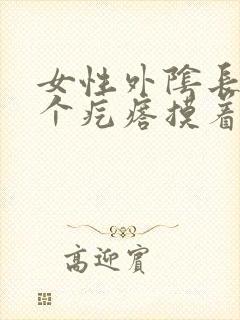 女性外陰長
个疙瘩摸着
高迎賓